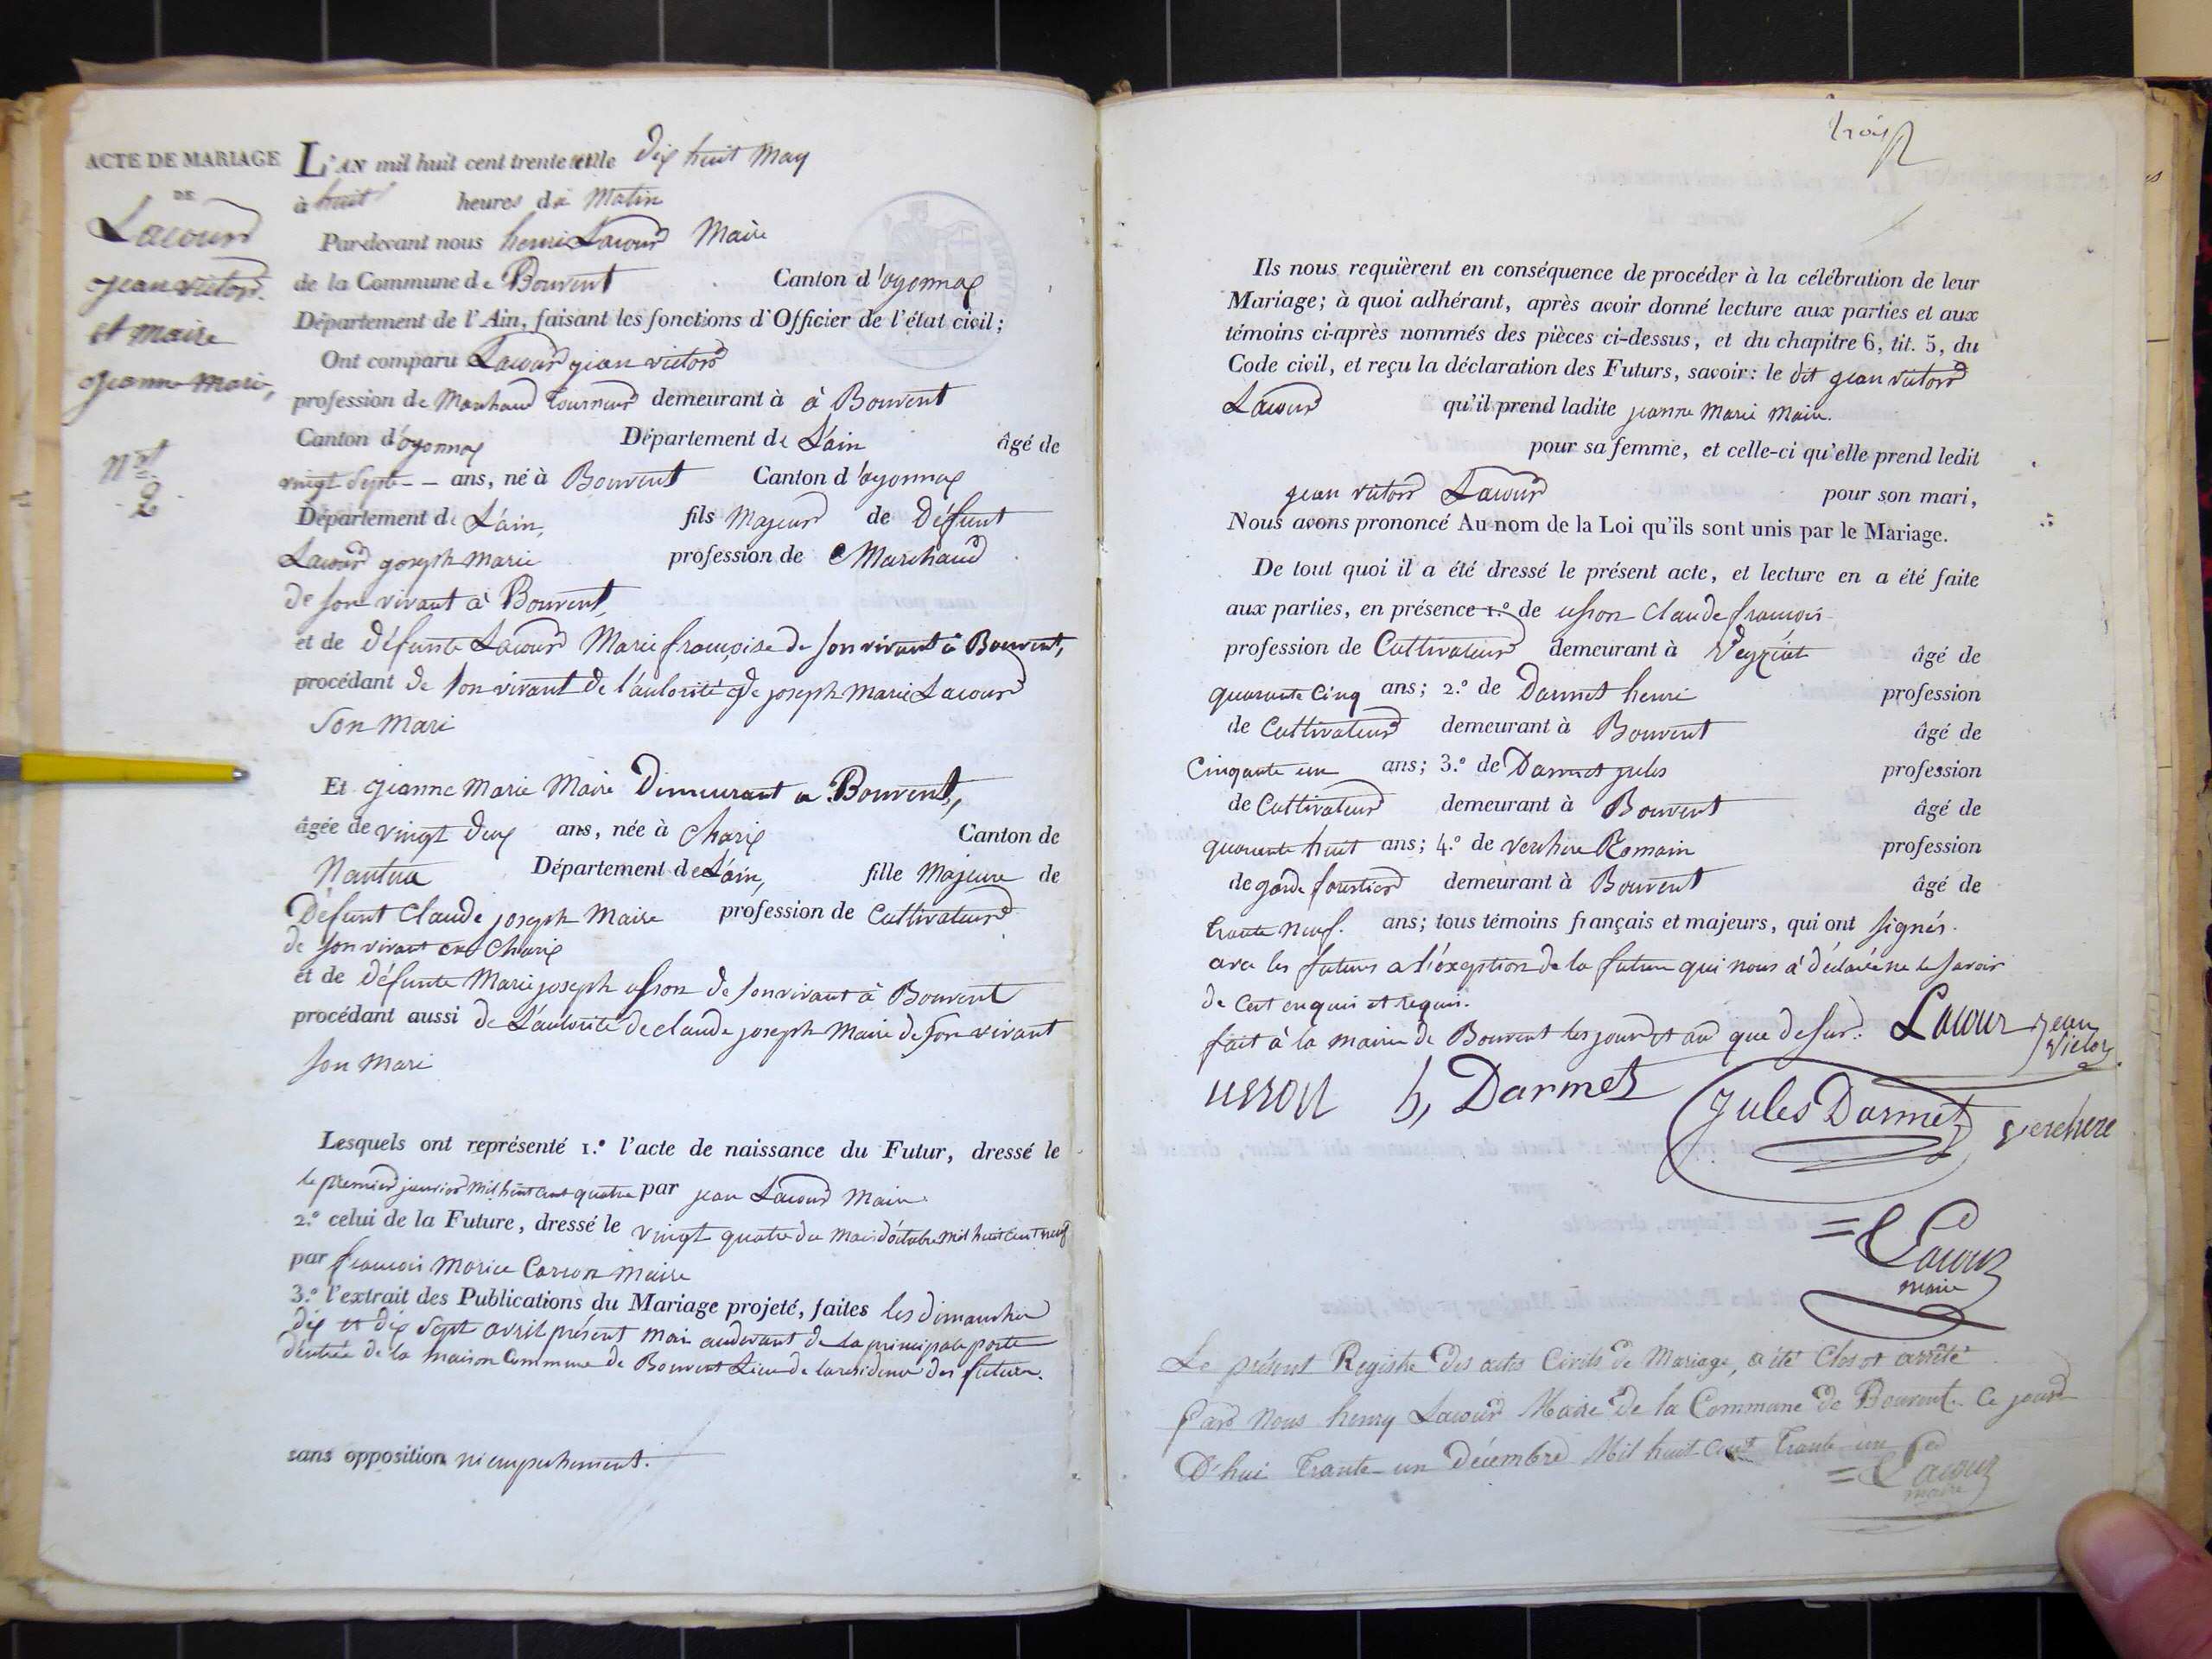 ACTE DE MARIAGE
DE
Lacour
jean victor
et maire
jeanne marie,
N.
2
L'AN mil huit cent trente un le dix huit May
à huit heures du Matin
Par-devant nous henri Lacour Maire
de la Commune de Bouvent Canton d'oyonnax
Département de l'Ain, faisant les fonctions d'Officier de l'état civil;
Ont comparu Lacour jean victor
profession de Marchaud tourneur demeurant à à Bouvent
Canton d'oyonnax Département de L'ain âgé de
vingt Sept ans, né à Bouvent Canton d'oyonnax
Département de L'ain, fils Majeur de Défunt
Lacour joseph marie profession de Marchaud
de son vivant à Bouvent,
et de défunte Lacour Marie françoise de son vivant à Bouvent,
procédant de son vivant de l'autorité de joseph marie Lacour
Son mari
Et jeanne marie Maire Demeurant a Bouvent,
âgée de vingt deux ans, née à Charix Canton de
Nantua Département de L'ain, fille Majeure de
Défunt Claude joseph Maire profession de Cultivateur
de son vivant Charix
et de défunte Marie joseph usson de son vivant à Bouvent
procédant aussi de L'autorité de claude joseph Maire de son vivant
son mari
Lesquels ont représenté 1.° l'acte de naissance du Futur, dressé le
le premier janvier mil huit cent quatre par jean Lacour Maire
2.° celui de la Future, dressé le vingt quatre du mois d'octobre mil huit cent neuf
par françois Marie Carron Maire
3.° l'extrait des Publications du Mariage projeté, faites les dimanches
dix et dix sept avril présent mois audevant de la principale porte
d'entrée de la maison Commune de Bouvent Lieu de la residence des futurs.
sans opposition ni empechement.
trois
Ils nous requièrent en conséquence de procéder à la célébration de leur
Mariage; à quoi adhérant, après avoir donné lecture aux parties et aux
témoins ci-après nommés des pièces ci-dessus, et du chapitre 6, tit. 5, du
Code civil, et reçu la déclaration des Futurs, savoir: le dit jean victor
Lacour qu'il prend ladite jeanne Marie Maire.
pour sa femme, et celle-ci qu'elle prend ledit
jean victor Lacour pour son mari,
Nous avons prononcé Au nom de la Loi qu'ils sont unis par le Mariage.
De tout quoi il a été dressé le présent acte, et lecture en a été faite
aux parties, en présence 1.° de usson Claude françois
profession de Cultivateur demeurant à Veyziat âgé de
quarante Cinq ans; 2.° de Darmet henri profession
de Cultivateur demeurant à Bouvent âgé de
Cinqante un ans; 3.° de Darmet jules profession
de Cultivateur demeurant à Bouvent âgé de
quarante huit ans; 4.° de verchere Romain profession
de garde forestier demeurant à Bouvent âgé de
trante neuf. ans; tous témoins français et majeurs, qui ont signés.
avec les futurs a l'éxeption de la future qui nous à déclaré ne le savoir
de Cest enquis et requis.
fait à la mairie de Bouvent les jour et an que desur. Lacour jean victor
usson h, Darmet Jules Darmet verchere
Lacour
maire
Le présent Registre des actes Civils de Mariage, a été Clos et arrêté
Par Nous henry Lacour Maire de la Commune de Bouvent. Ce jour
D'hui Trante-un Décembre Mil huit Cent Trante un
Lacour
maire